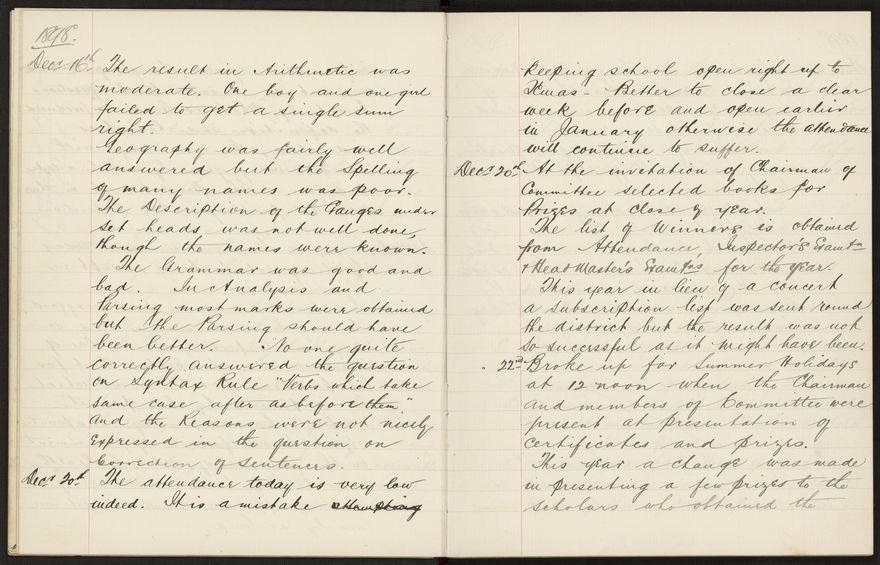 1898.
Decr 16th The result in Arithmetic was
moderate. One boy and one girl
failed to get a single sum
right.
Geography was fairly well
answered but the Spelling
of many names was poor.
The Description of the Ganges under
set heads, was not well done,
though the names were known.
The Grammar was good and
bad. In Analysis and
Parsing most marks were obtained
but the Parsing should have
been better. No one quite
correctly answered the question
on Syntax Rule "Verbs which take
same case after as before them."
and the Reasons were not nicely
expressed in the question on
Correction of Sentences.
Decr 20th The attendance today is very low
indeed. It is a mistake attempting
keeping school open right up to
Xmas - Better to close a clear
week before and open earlier
in January otherwise the attendance
will continue to suffer.
Decr 20th At the invitation of Chairman of
Committee selected books for
Prizes at close of year.
The list of Winners is obtained
from Attendance, Inspector's Examtn
& Head Master's Examtns for the year.
This year in lieu of a concert
a subscription list was sent round
the district but the result was not
so successful as it might have been.
" 22nd Broke up for Summer Holidays
at 12 noon when the Chairman
and members of Committee were
present at presentation of
certificates and prizes.
This year a change was made
in presenting a few prizes to the
scholars who obtained the